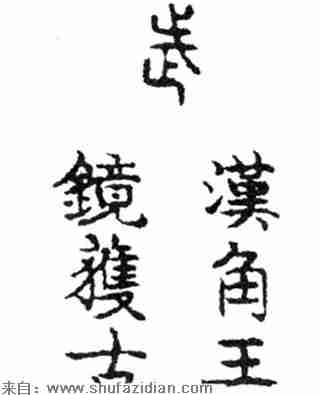 武
漢角王
鏡獲古
来自：www.shufazidian.com